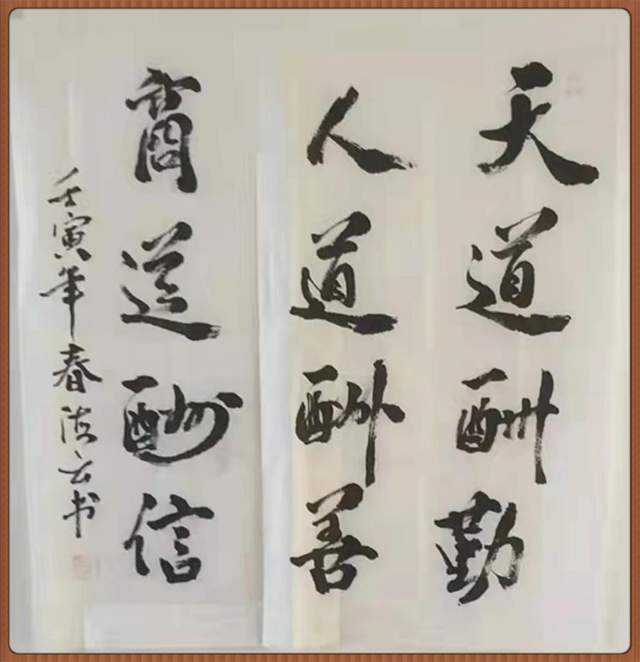 天道酬勤
人道酬善
商道酬信
壬寅年春法云书